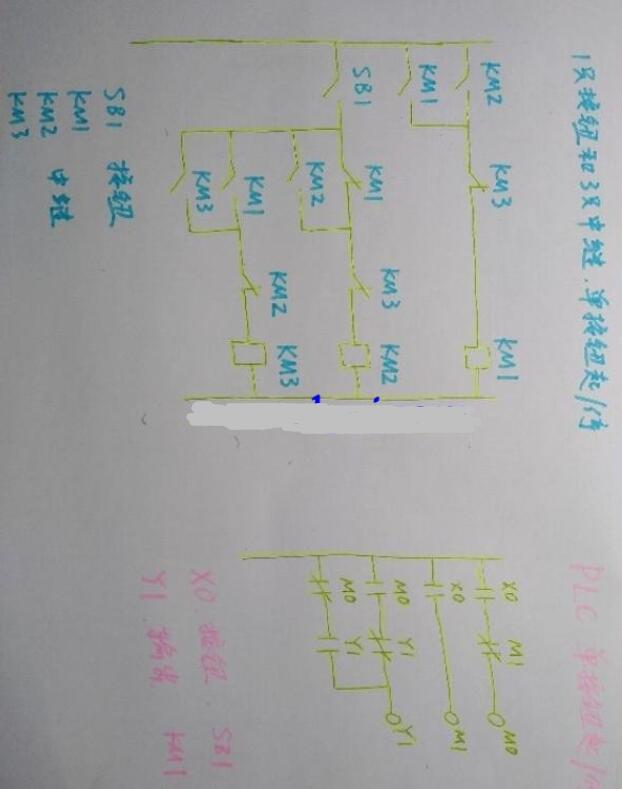 1只按钮和3只中继.单按钮起/停
KM2
KM3
KM1
KM1
SB1
KM1
KM3
KM2
KM2
KM1
KM2
KM3
KM3
SB1 按钮
KM1
KM2 中继
KM3
PLC 单按钮起/停
X0 M1 M0
X0 M1
M0 Y1 Y1
M0 Y1
X0 按钮 SB1
Y1 输出 KM1